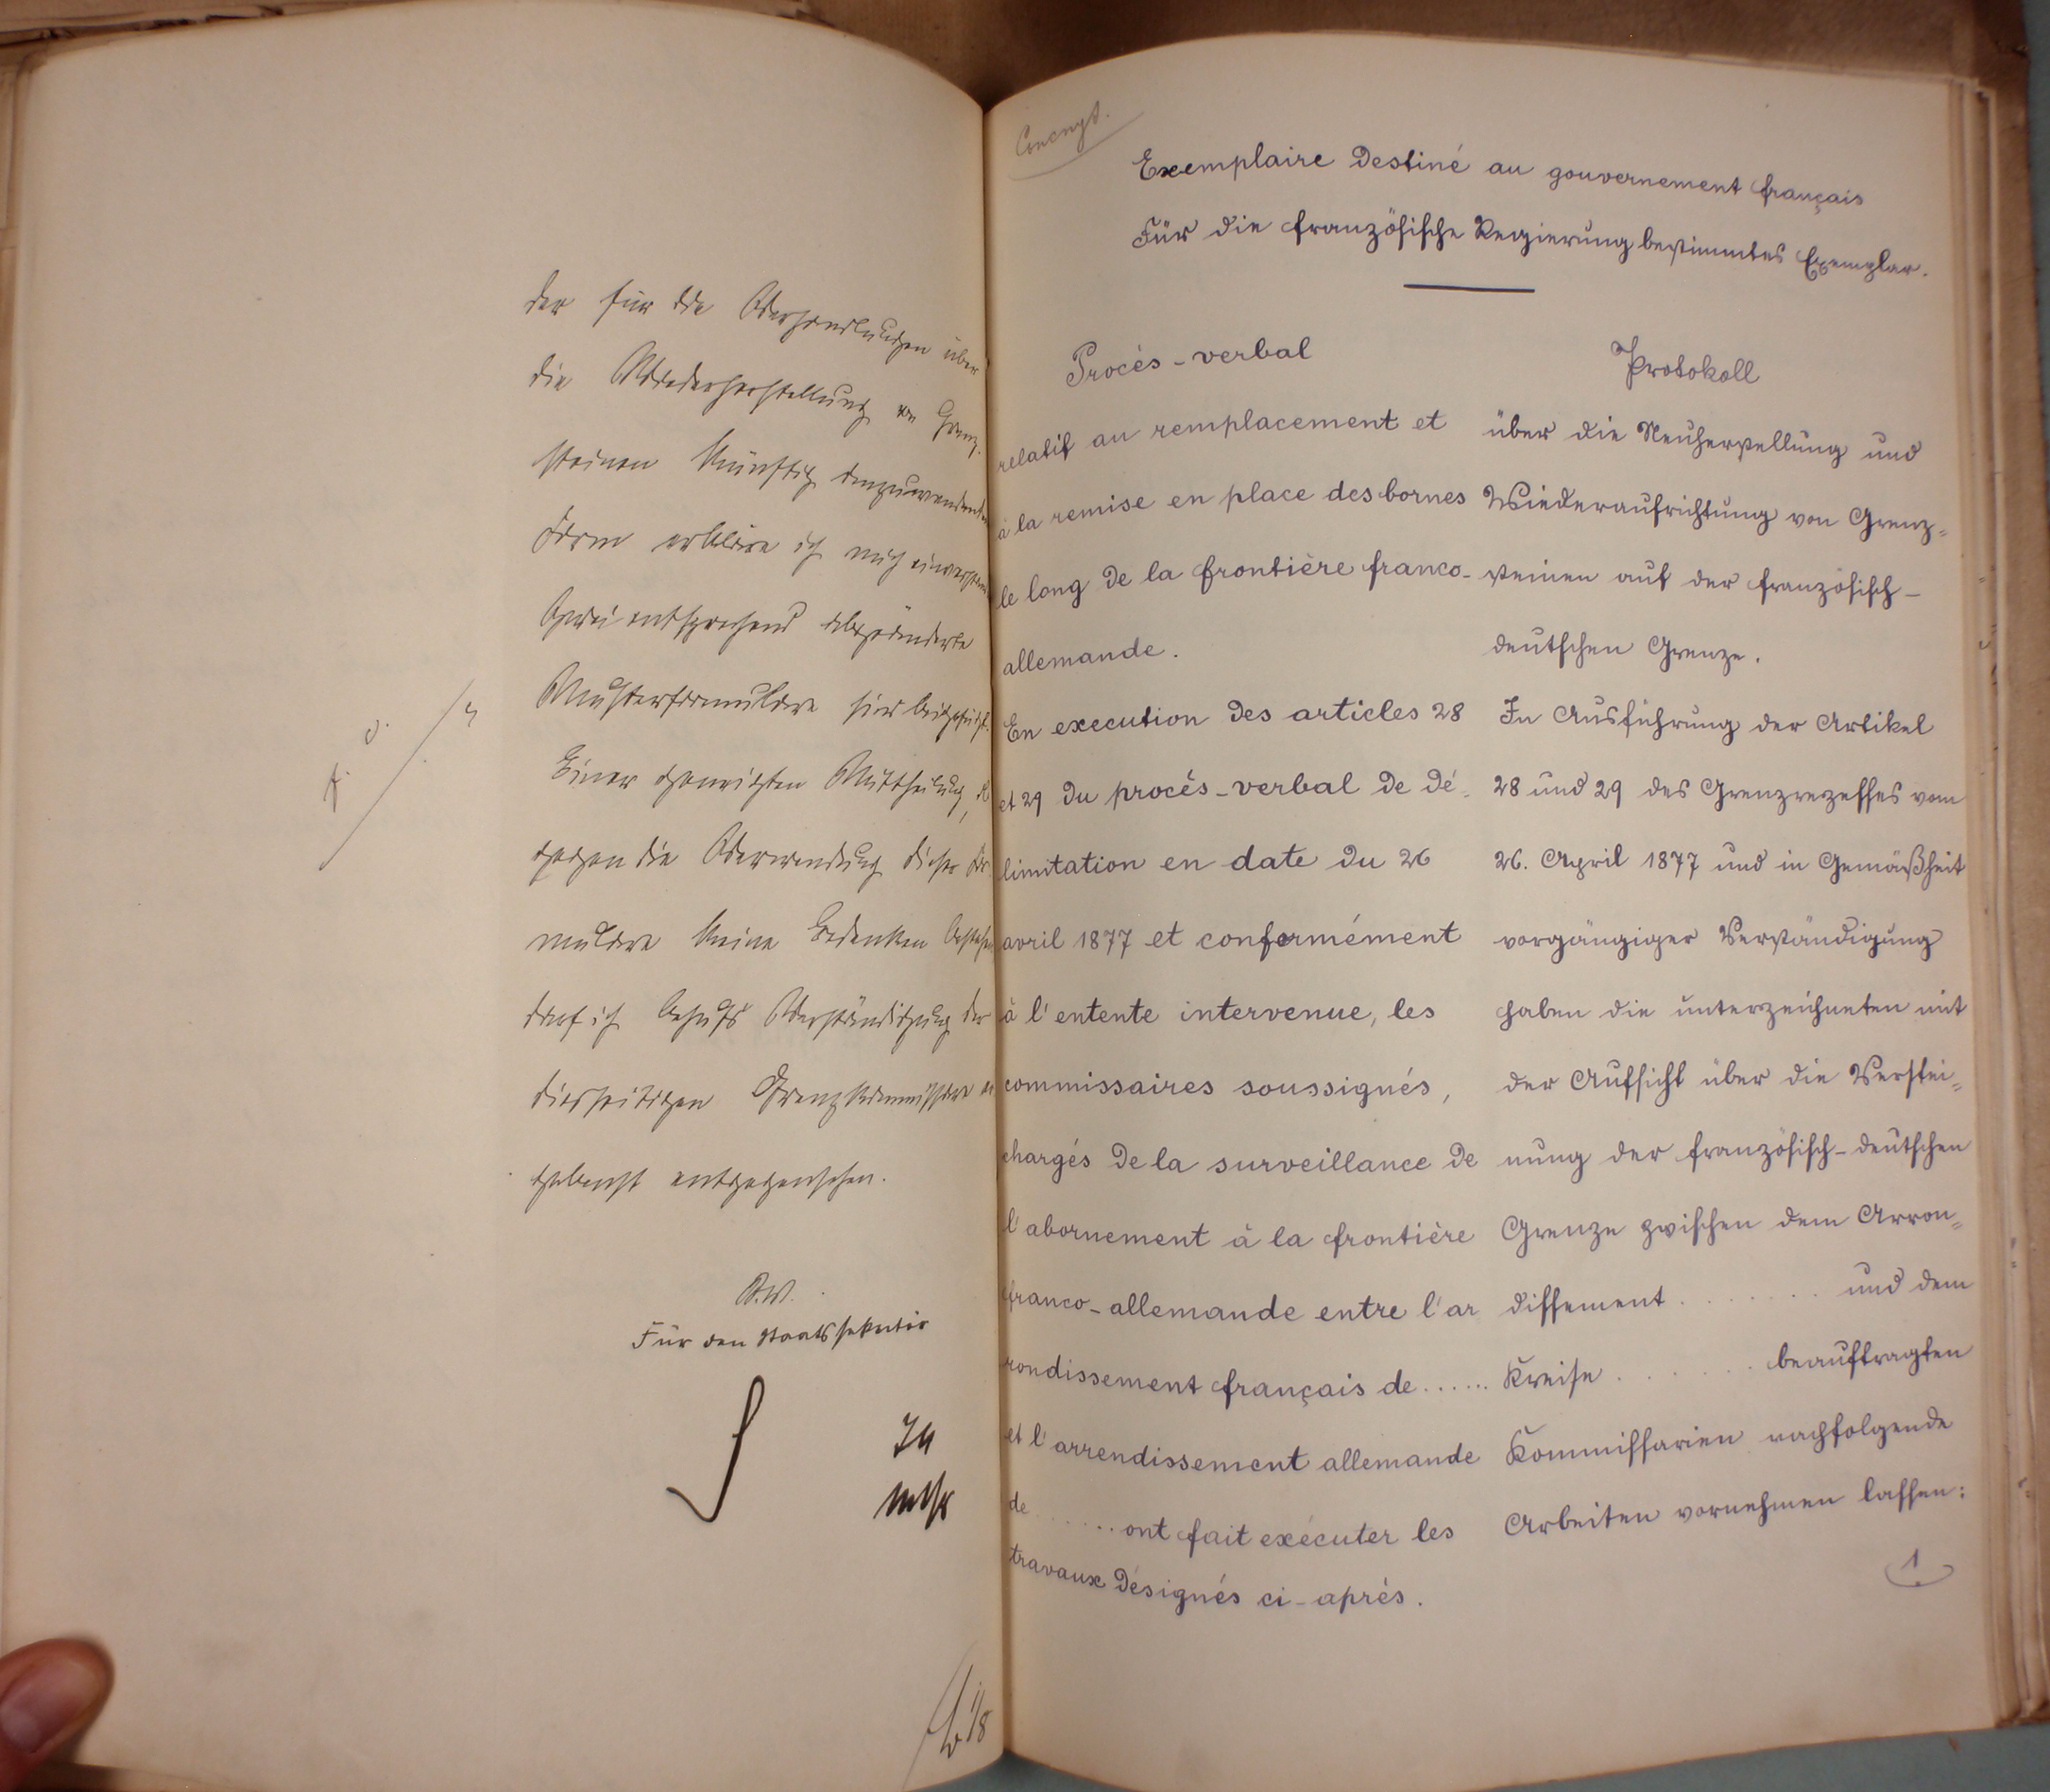 der für die Verhandlungen über
die Wiederherstellung von Grenz-
steinen künftig anzuwendenden
Form erkläre ich mich einverstan
Zwei entsprechend abgeänderte
Musterformulare sind beigefügt.
Einer geneigten Mittheilung,
gegen die Verwendung dieser For
mulare keine Bedenken bestehen
darf ich behufs Verständigung der
diesseitigen Grenzkommissare
gebenst entgegensehen.
Für den Staatssekretär
Concept.
Exemplaire destiné au gouvernement français
Für die französische Regierung bestimmtes Exemplar.
Procès-verbal
relatif au remplacement et
à la remise en place des bornes
le long de la frontière franco-
allemande.
En execution des articles 28
et 29 du procès-verbal de dé-
limitation en date du 26
avril 1877 et conformément
à l'entente intervenue, les
commissaires soussignés,
chargés de la surveillance de
l'abornement à la frontière
franco-allemande entre l'ar
rondissement français de ......
et l'arrendissement allemande
de ....... ont fait exécuter les
travaux désignés ci-après.
Protokoll
über die Neuherstellung und
Wiederaufrichtung von Grenz=
steinen auf der französisch-
deutschen Grenze.
In Ausführung der Artikel
28 und 29 des Grenzrezesses vom
26. April 1877 und in Gemäßheit
vorgängiger Verständigung
haben die unterzeichneten mit
der Aufsicht über die Verstei=
nung der französisch-deutschen
Grenze zwischen dem Arron=
dissement ........ und dem
Kreise ....... beauftragten
Kommissarien nachfolgende
Arbeiten vornehmen lassen:
1